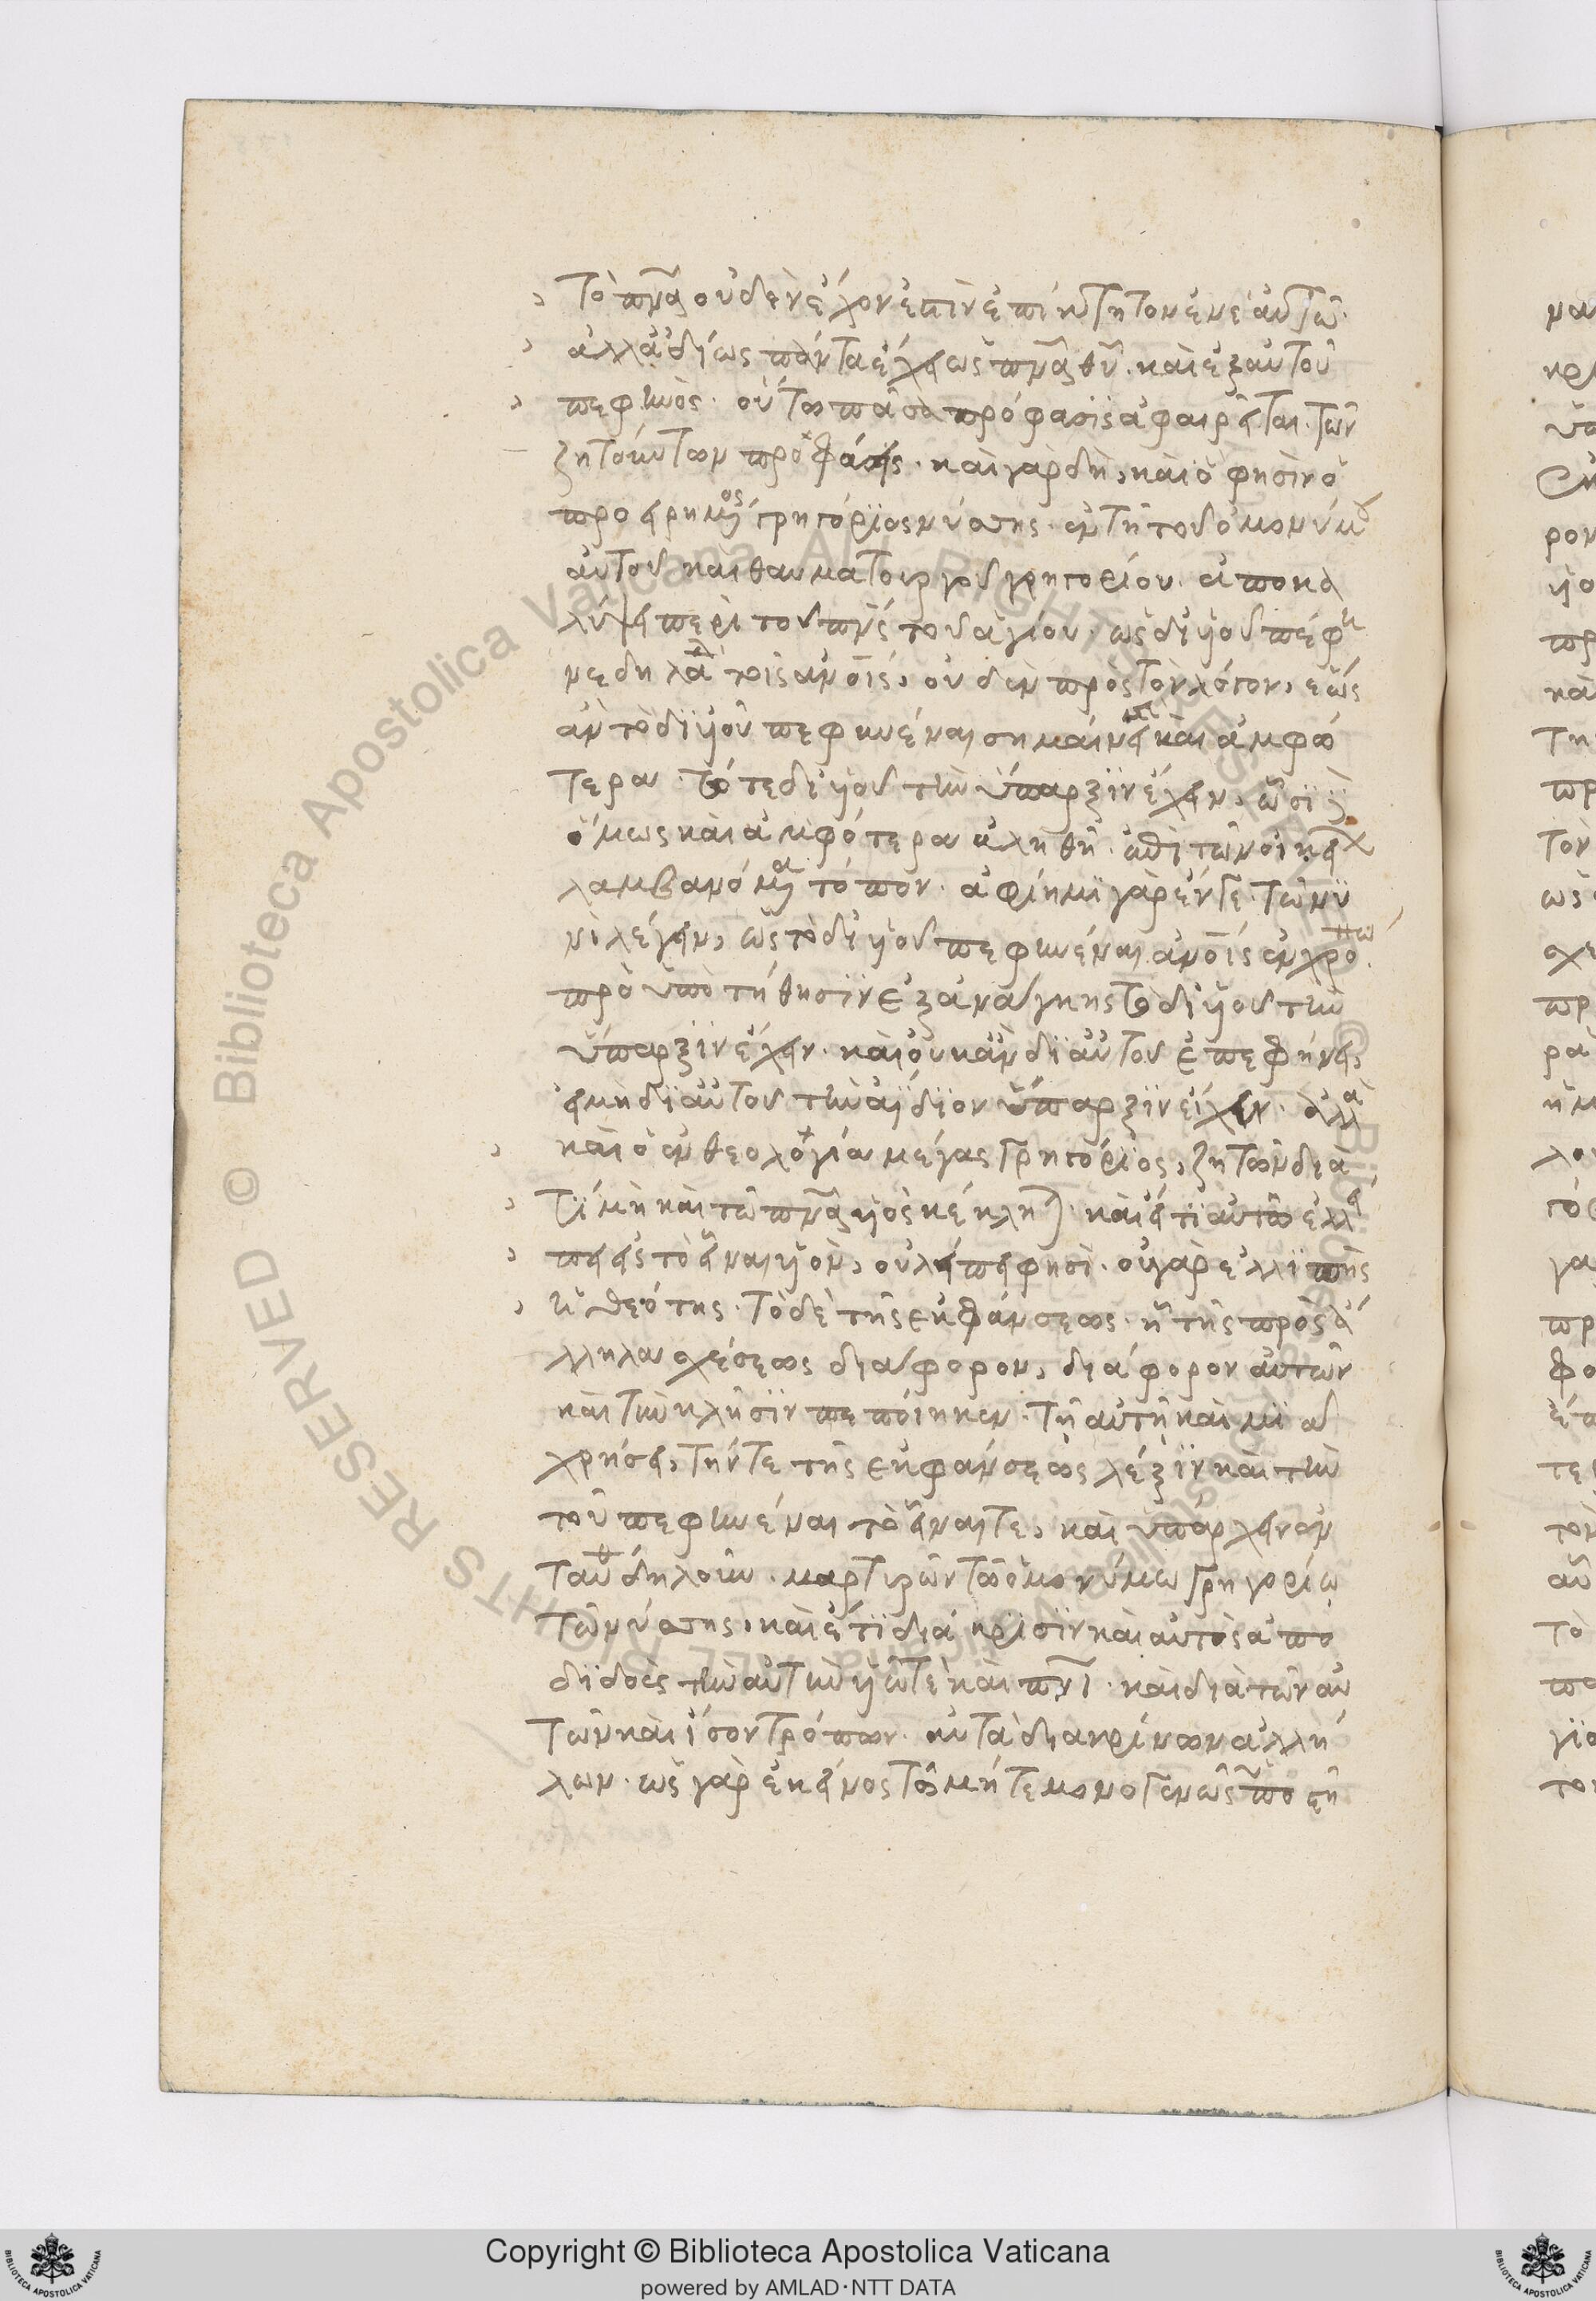 Τὸ πνᾶ οὐδὲν ἔχον ἐστὶν ἐπίκτητον ἐν ἑαυτῶ·
ἀλλ' ἀϊδίως πάντα ἔχει ὡς πνᾶ θυ̃· καὶ ἐξ αὐτοῦ
πεφηνὸς· οὕτω πᾶσα πρόφασις ἀφαιρεῖται τῶν
ζητούντων προφάσεις· καὶ γὰρ δὴ, καὶ ὅ φησιν ὁ
προειρημένος γρηγόριος νύσσης· ἐν τῆ τοῦ ὁμωνύμου
αὐτοῦ καὶ θαυματουργοῦ γρηγορίου ἀποκα
λύψει περὶ τοῦ πνς τοῦ ἁγίου· ὡς δι' ὑοῦ πέφη
νε δηλαδὴ τοῖς ἀνοις, οὐδὲν πρὸς τὸν λόγον, ἕως
ἂν τὸ δι' ὑοῦ πεφηνέναι σημαίνει καὶ ἀμφό
τερα· τό τε δι' ὑοῦ τὴν ὕπαρξιν ἔχειν,
ὅμως καὶ ἀμφότερα ἀληθῆ
λαμβανόμενα τόπον· ἀφίημι γὰρ ἔντε τῶ νῦ
νὶ λέγειν, ὡς τὸ δι' ὑοῦ πεφηνέναι ἀνοις ἐν χρόνω
προϋποτίθησιν ἐξ ἀνάγκης τὸ δι' ὑοῦ τὴν
ὕπαρξιν ἔχειν· καὶ οὐκ ἂν δι' αὐτοῦ ἐπεφήνει,
εἰ μὴ δι' αὐτοῦ τὴν ἀΐδιον ὕπαρξιν εἶχεν· ἀλλὰ
καὶ ὁ ἐν θεολογία μέγας γρηγόριος, ζητῶν διὰ
τί μὴ καὶ τῶ πνᾶ ὑὸς κέκληται· καὶ εἴ τι αὐτῶ ἐλλεί
πει εἰς τὸ εἶναι ὑὸν, οὐ λείπει φησὶ· οὐ γὰρ ἐλλιπὴς
ἡ θεότης· τὸ δὲ τῆς ἐκφάνσεως· ἢ τῆς πρὸς ἄ
λληλα σχέσεως διάφορον, διάφορον αὐτῶν
καὶ τὴν κλῆσιν πεποίηκεν· Τῆ αὐτῆ καὶ μιᾶ
χρήσει, τήν τε τῆς ἐκφάνσεως λέξιν καὶ τὴν
τοῦ πεφηνέναι τὸ εἶναί τε, καὶ ὑπάρχειν ἐν
ταῦθα δηλοῦν· μαρτυρῶν τῶ ὁμωνύμω γρηγορίω
τῶ νύσσης, καὶ ἔτι διάκρισιν καὶ αὐτὸς ἀπο
διδοὺς τὴν αὐτὴν ὑῶ τὲ καὶ πνι· καὶ διὰ τῶν αὐ
τῶν καὶ ἴσον τρόπων· αὐτὰ διακρίνων ἀλλή
λων· ὡς γὰρ ἐκεῖνος τῶ μήτε μονογενῶς ὑποστῆ